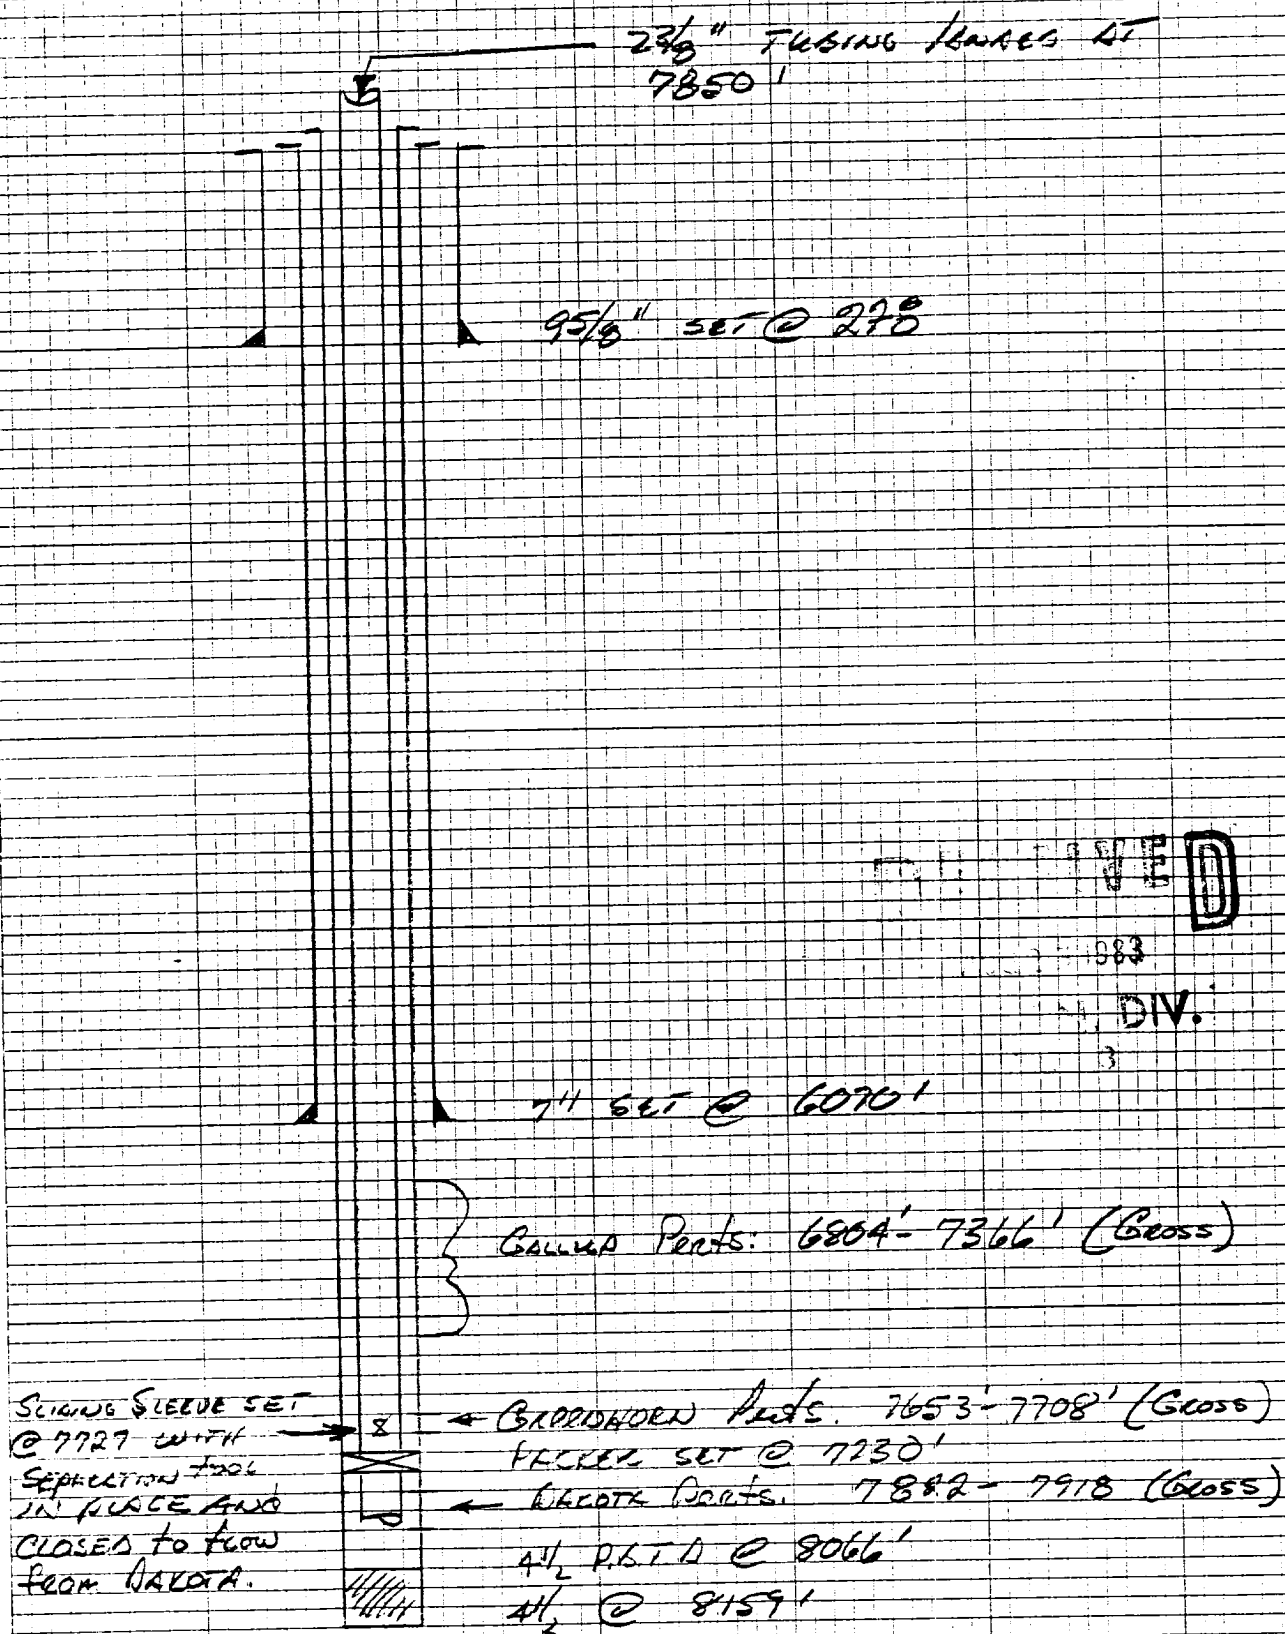 2 3/8" TUBING LANDED AT
7850'
9 5/8" SET @ 270
IVED
983
DIV.
3
7" SET @ 6070'
GALLUP Perfs: 6804'- 7366' (GROSS)
SLIDING SLEEVE SET
@ 7727 WITH
SEPARATION TOOL
IN PLACE AND
CLOSED to FLOW
FROM DAKOTA.
GREENHORN Perfs. 7653'-7708' (GROSS)
PACKER SET @ 7730'
DAKOTA Perfs. 7882- 7918 (GROSS)
4 1/2 P.B.T.D @ 8066'
4 1/2 @ 8159'